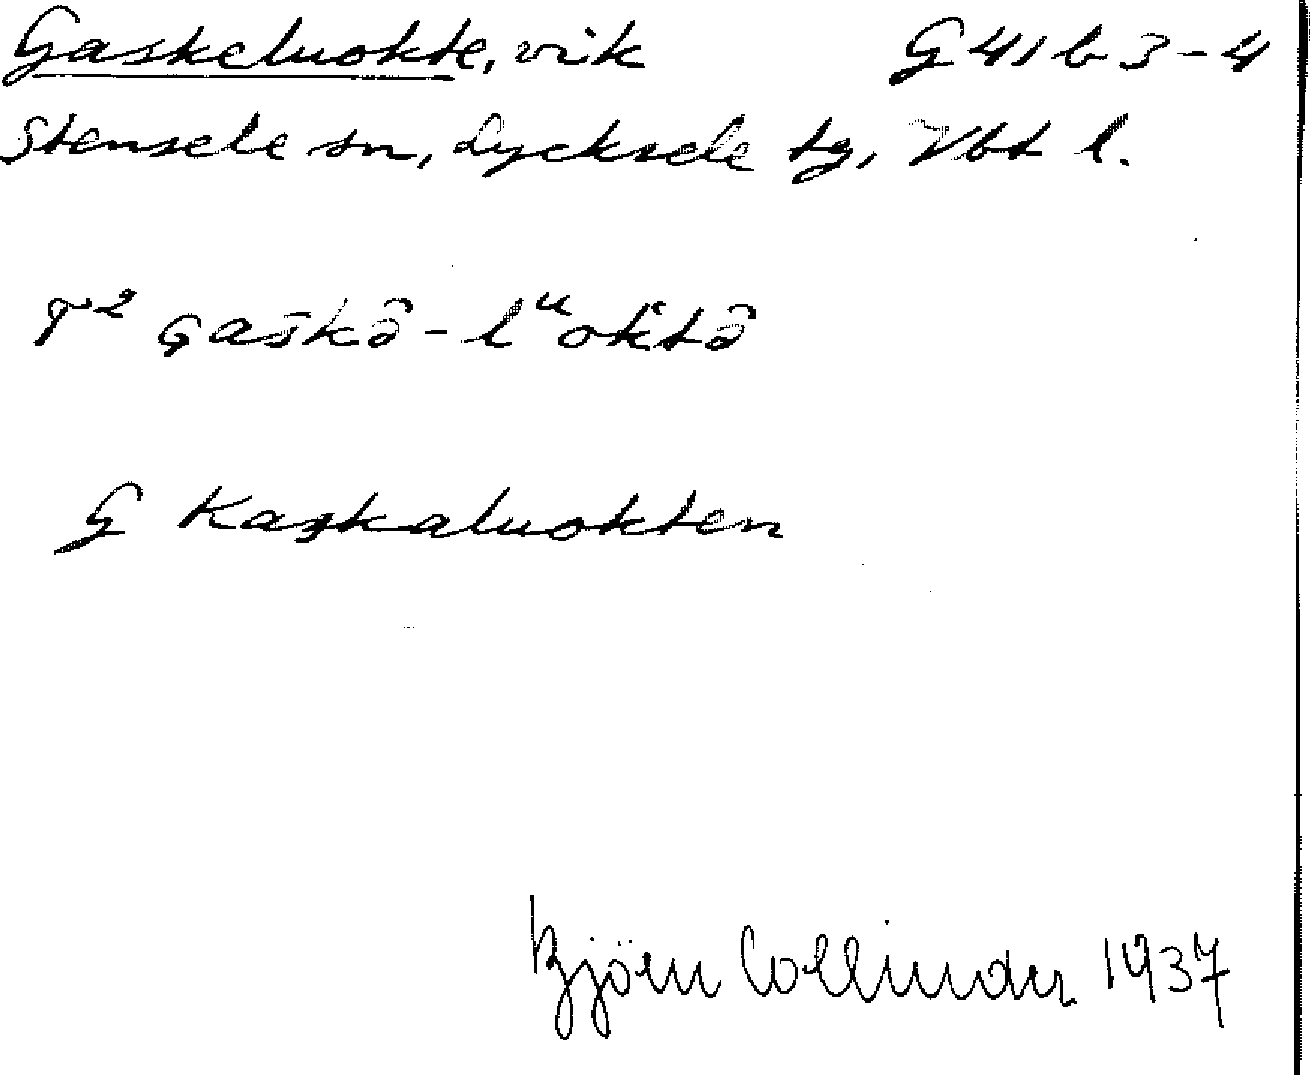 Gaskeluokte, vik G 41 b 3-4
Stensele sn, Lycksele tg, Vbt l.
T² Gaskə̂-lᵘoktə̂
G Kaskaluokten
Björn Collinder 1937